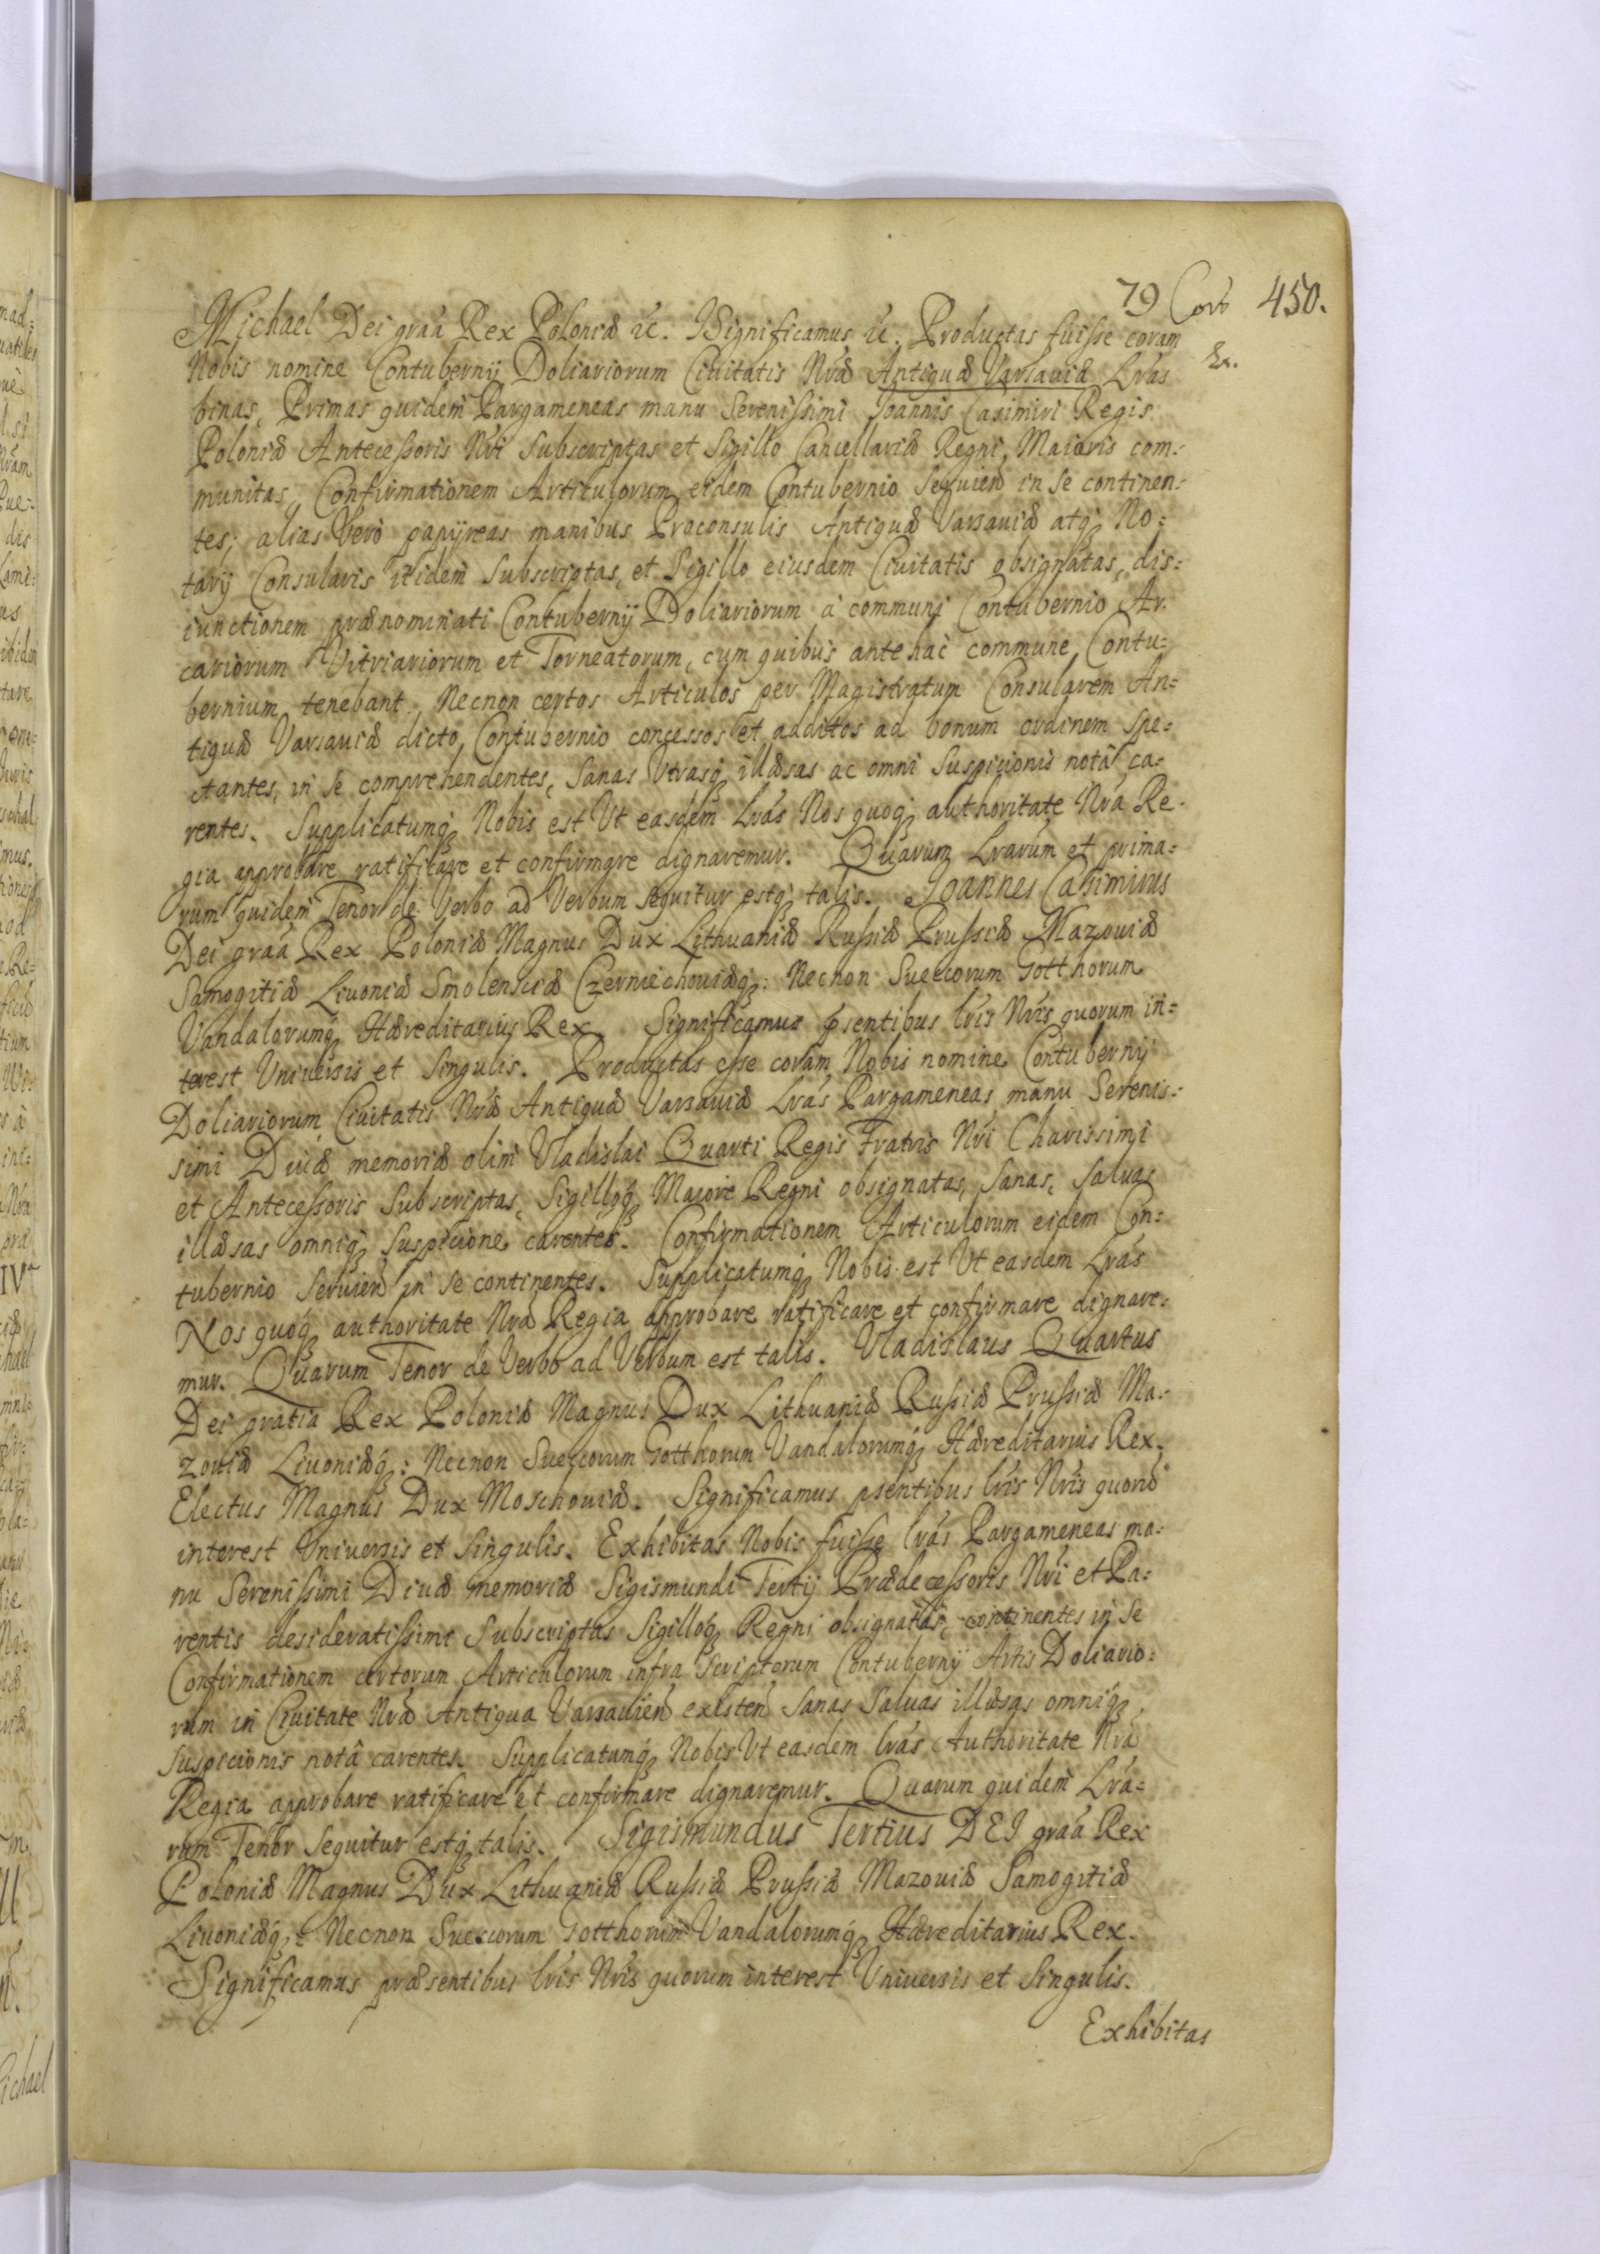 79 450.
Michael Dei graã Rex Poloniæ &c. Significamus &c. Productas fuisse coram
Nobis nomine Contubernij Doliariorum Civitatis Nræ Antiquæ Varsauiæ Lrás
binas, Primas quidem Pargameneas manu Serenissimi Joannis Casimiri Regis
Poloniæ Antecessoris Nri Subscriptas et Sigillo Cancellariæ Regni, Maioris com-
munitas, Confirmationem Articulorum eidem Contubernio Seruieñ in se continen-
tes; alias Vero papyreas manibus Proconsulis Antiquæ Varsauiæ atq; No-
tarij Consularis itidem Subscriptas, et Sigillo eiusdem Ciuitatis obsignatas, dis-
iunctionem prænominati Contubernij Doliariorum à communi Contubernio Ar-
cariorum Vitriariorum et Torneatorum, cum quibus ante hac commune Contu-
bernium tenebant, Necnon certos Articulos per Magistratum Consularem An-
tiquæ Varsauiæ dicto Contubernio concessos et additos ad bonum ordinem spe-
ctantes, in se comprehendentes, Sanas Vtrasq; illæsas ac omni Suspicionis notâ ca-
rentes. Supplicatumq; Nobis est Vt easdem Lrás Nos quoq; authoritate Nrá Re-
gia approbare ratificare et confirmare dignaremur. Quarum Lrarum et prima-
rum quidem Tenor de Verbo ad Verbum sequitur estq; talis. Joannes Casimirus
Dei graã Rex Poloniæ Magnus Dux Lithuaniæ Russiæ Prussiæ Mazouiæ
Samogitiæ Liuoniæ Smolensciæ Czerniechouiæq;: Necnon Suecorum Gotthorum
Vandalorumq; Hæreditarius Rex. Significamus psentibus lris Nris quorum in-
terest Vniuersis et Singulis. Productas esse coram Nobis nomine Contubernij
Doliariorum Ciuitatis Nræ Antiquæ Varsauiæ Lrás Pargameneas manu Serenis-
simi Diuæ memoriæ olim Vladislai Quarti Regis Fratris Nri Charissimi
et Antecessoris Subscriptas, Sigilloq; Maiore Regni obsignatas, Sanas, Saluas
illæsas omniq; Suspicione carentes. Confirmationem Articulorum eidem Con-
tubernio Seruieñ in se continentes. Supplicatumq; Nobis est Vt easdem Lrás
Nos quoq; authoritate Nrá Regia approbare ratificare et confirmare dignare-
mur. Quarum Tenor de Verbo ad Verbum est talis. Vladislaus Quartus
Dei gratia Rex Poloniæ Magnus Dux Lithuaniæ Russiæ Prussiæ Ma-
zouiæ Liuoniæq;: Necnon Suecorum Gotthorum Vandalorumq; Hæreditarius Rex.
Electus Magnus Dux Moschouiæ. Significamus psentibus lris Nris quorũ
interest Vniuersis et Singulis. Exhibitas Nobis fuisse lrás Pargameneas ma-
nu Serenissimi Diuæ memoriæ Sigismundi Tertij Prædecessoris Nri et Pa-
rentis desideratissimi Subscriptas Sigilloq; Regni obsignatas, continentes in Se
Confirmationem certorum Articulorum infra Scriptorum Contubernij Artis Doliario-
rum in Ciuitate Nrá Antiqua Varsauieñ existeñ Sanas Saluas illæsas omniq;
suspicionis notâ carentes. Supplicatumq; Nobis Vt easdem lrás Authoritate Nrá
Regia approbare ratificare et confirmare dignaremur. Quarum quidem Lrá-
rum Tenor Sequitur estq; talis. Sigismundus Tertius DEI graã Rex
Poloniæ Magnus Dux Lithuaniæ Russiæ Prussiæ Mazouiæ Samogitiæ
Liuoniæq;: Necnon Suecorum Gotthorum Vandalorumq; Hæreditarius Rex.
Significamus præsentibus lris Nris quorum interest Vniuersis et Singulis.
Exhibitas